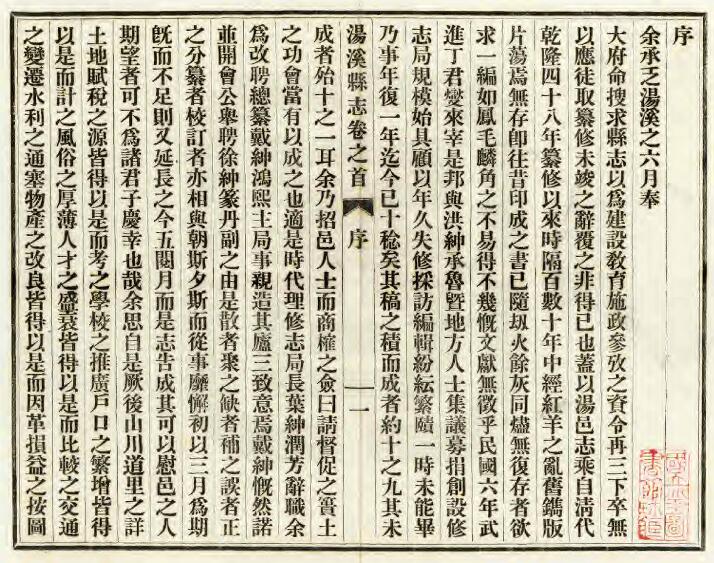 序
余承乏湯溪之六月奉
大府命搜求縣志以爲建設敎育施政參攷之資令再三下卒無
以應徒取纂修未竣之辭覆之非得已也蓋以湯邑志乘自淸代
乾隆四十八年纂修以來時隔百數十年中經紅羊之亂舊鐫版
片蕩焉無存卽往昔印成之書已隨刼火餘灰同燼無復存者欲
求一編如鳳毛麟角之不易得不幾慨文獻無徵乎民國六年武
進丁君燮來宰是邦與洪紳承魯曁地方人士集議募捐創設修
志局規模始具顧以年久失修採訪編輯紛紜繁賾一時未能畢
乃事年復一年迄今已十稔矣其稿之積而成者約十之九其未
湯溪縣志卷之首 序 一
成者殆十之一耳余乃招邑人士而商榷之僉曰請督促之簣土
之功會當有以成之也適是時代理修志局長葉紳潤芳辭職余
爲改聘總纂戴紳鴻熙主局事親造其廬三致意焉戴紳慨然諾
並開會公舉聘徐紳篆丹副之由是散者聚之缺者補之誤者正
之分纂者校訂者亦相與朝斯夕斯而從事靡懈初以三月爲期
旣而不足則又延長之今五閱月而是志告成其可以慰邑之人
期望者可不爲諸君子慶幸也哉余思自是厥後山川道里之詳
土地賦稅之源皆得以是而考之學校之推廣戶口之繁增皆得
以是而計之風俗之厚薄人才之盛衰皆得以是而比較之交通
之變遷水利之通塞物產之改良皆得以是而因革損益之按圖